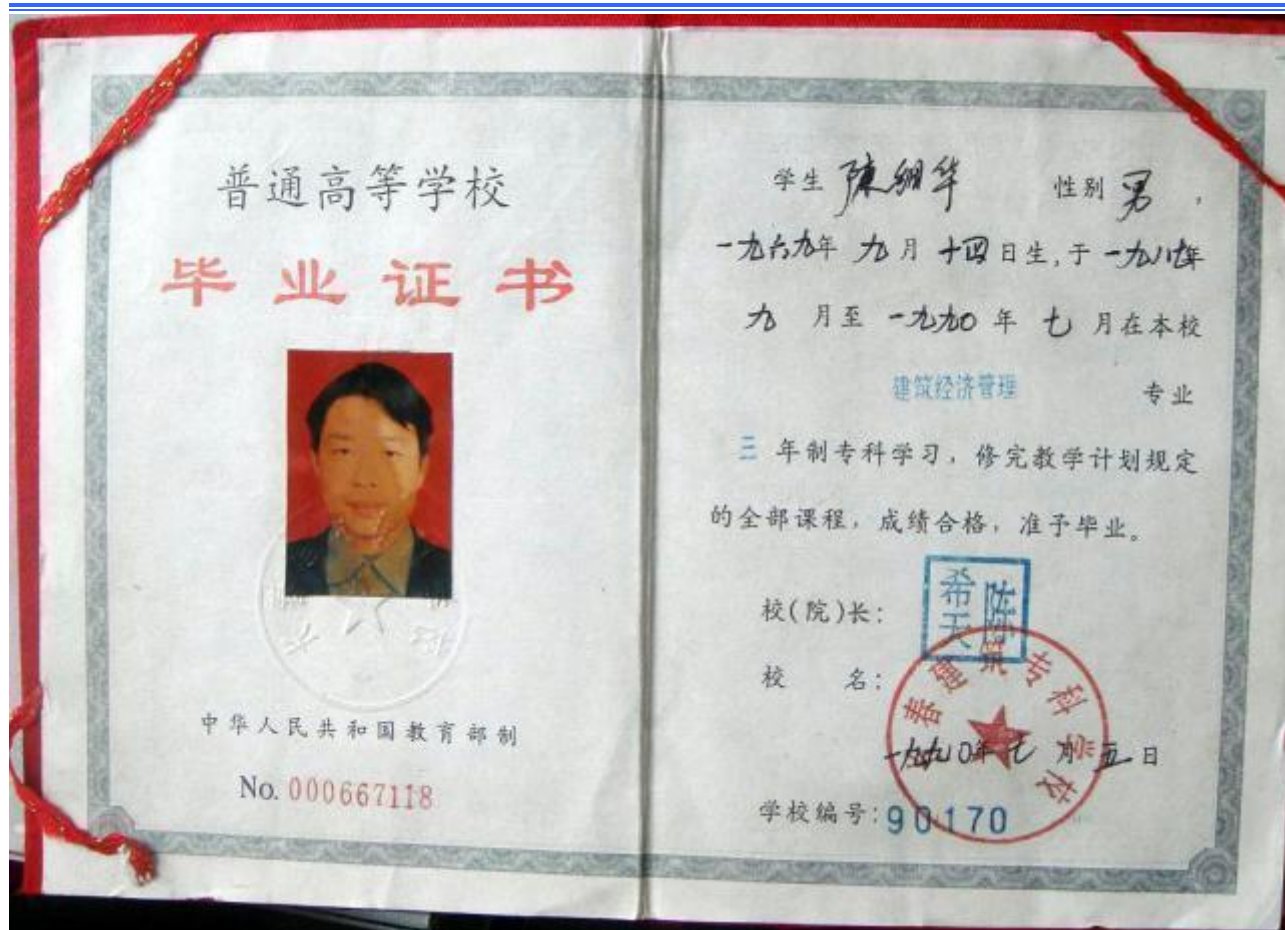 普通高等学校
毕业证书
中华人民共和国教育部制
No. 000667118
学生 陳 华 性别 男 ,
一九六九年 九 月 十四 日生,于 一九八七年
九 月至 一九九0 年 七 月在本校
建筑经济管理 专业
三 年制专科学习,修完教学计划规定
的全部课程,成绩合格,准予毕业。
校(院)长:
陈希天
校 名:
春建筑专科学校
一九九0年 七 月 五 日
学校编号:90170